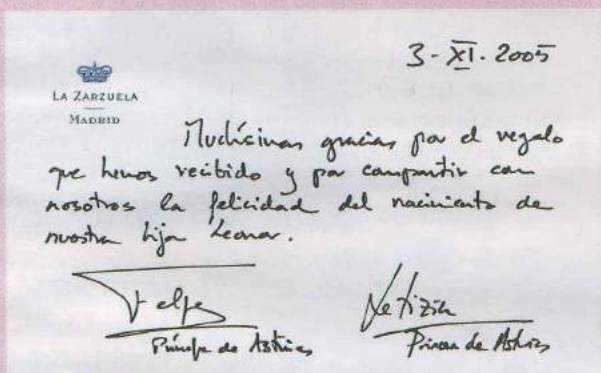 3-XI.2005
LA ZARZUELA
MADRID
Muchísimas gracias por el regalo
que hemos recibido y por compartir con
nosotros la felicidad del nacimiento de
nuestra hija Leonor.
Felipe
Letizia
Príncipe de Asturias
Princesa de Asturias